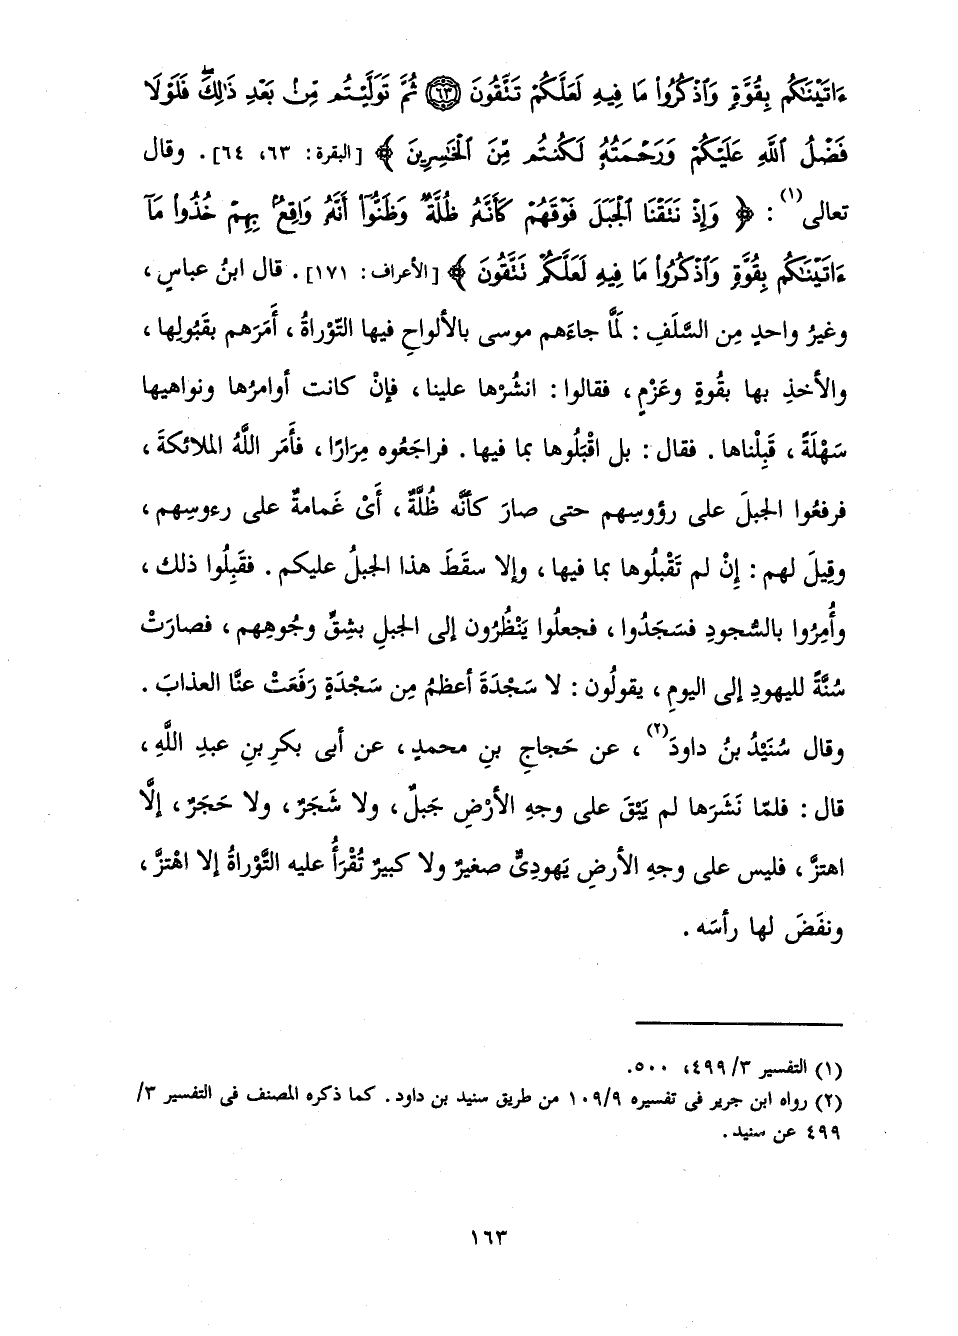 ءَاتَيْنَٰكُم بِقُوَّةٍ وَٱذْكُرُوا۟ مَا فِيهِ لَعَلَّكُمْ تَتَّقُونَ ﴿٦٣﴾ ثُمَّ تَوَلَّيْتُم مِّنۢ بَعْدِ ذَٰلِكَ ۖ فَلَوْلَا
فَضْلُ ٱللَّهِ عَلَيْكُمْ وَرَحْمَتُهُۥ لَكُنتُم مِّنَ ٱلْخَٰسِرِينَ ﴾ [البقرة: ٦٣، ٦٤]. وقال
تعالى(١): ﴿ وَإِذْ نَتَقْنَا ٱلْجَبَلَ فَوْقَهُمْ كَأَنَّهُۥ ظُلَّةٌ وَظَنُّوٓا۟ أَنَّهُۥ وَاقِعٌۢ بِهِمْ خُذُوا۟ مَآ
ءَاتَيْنَٰكُم بِقُوَّةٍ وَٱذْكُرُوا۟ مَا فِيهِ لَعَلَّكُمْ تَتَّقُونَ ﴾ [الأعراف: ١٧١]. قال ابنُ عباسٍ،
وغيرُ واحدٍ مِن السَّلَفِ: لَمَّا جاءَهم موسى بالألواحِ فيها التَّوْراةُ، أَمَرَهم بقَبُولِها،
والأخذِ بها بقُوةٍ وعَزْمٍ، فقالوا: انشُرْها علينا، فإنْ كانت أوامرُها ونواهيها
سَهْلَةً، قَبِلْناها. فقال: بل اقْبَلُوها بما فيها. فراجَعُوه مِرَارًا، فأَمَر اللَّهُ الملائكةَ،
فرفعُوا الجبلَ على رؤوسِهم حتى صارَ كأنَّه ظُلَّةٌ، أَىْ غَمامةٌ على رءوسِهم،
وقِيلَ لهم: إِنْ لم تَقْبلُوها بما فيها، وإلا سقَطَ هذا الجبلُ عليكم. فقَبِلُوا ذلك،
وأُمِرُوا بالسُّجودِ فسَجَدُوا، فجعلُوا يَنْظُرُون إلى الجبلِ بشِقِّ وجُوهِهم، فصارَتْ
سُنَّةً لليهودِ إلى اليومِ، يقولُون: لا سَجْدَةَ أعظمُ مِن سَجْدَةٍ رَفَعَتْ عنَّا العذابَ.
وقال سُنَيْدُ بنُ داودَ(٢)، عن حَجاجِ بنِ محمدٍ، عن أبى بكرِ بنِ عبدِ اللَّهِ،
قال: فلمّا نَشَرَها لم يَبْقَ على وجهِ الأرْضِ جَبلٌ، ولا شَجَرٌ، ولا حَجَرٌ، إلَّا
اهتزَّ، فليس على وجهِ الأرضِ يَهودِىٌّ صغيرٌ ولا كبيرٌ تُقْرَأُ عليه التَّوْراةُ إلا اهْتزَّ،
ونفَضَ لها رأسَه.
(١) التفسير ٣/ ٤٩٩، ٥٠٠.
(٢) رواه ابن جرير فى تفسيره ٩/ ١٠٩ من طريق سنيد بن داود. كما ذكره المصنف فى التفسير ٣/
٤٩٩ عن سنيد.
١٦٣